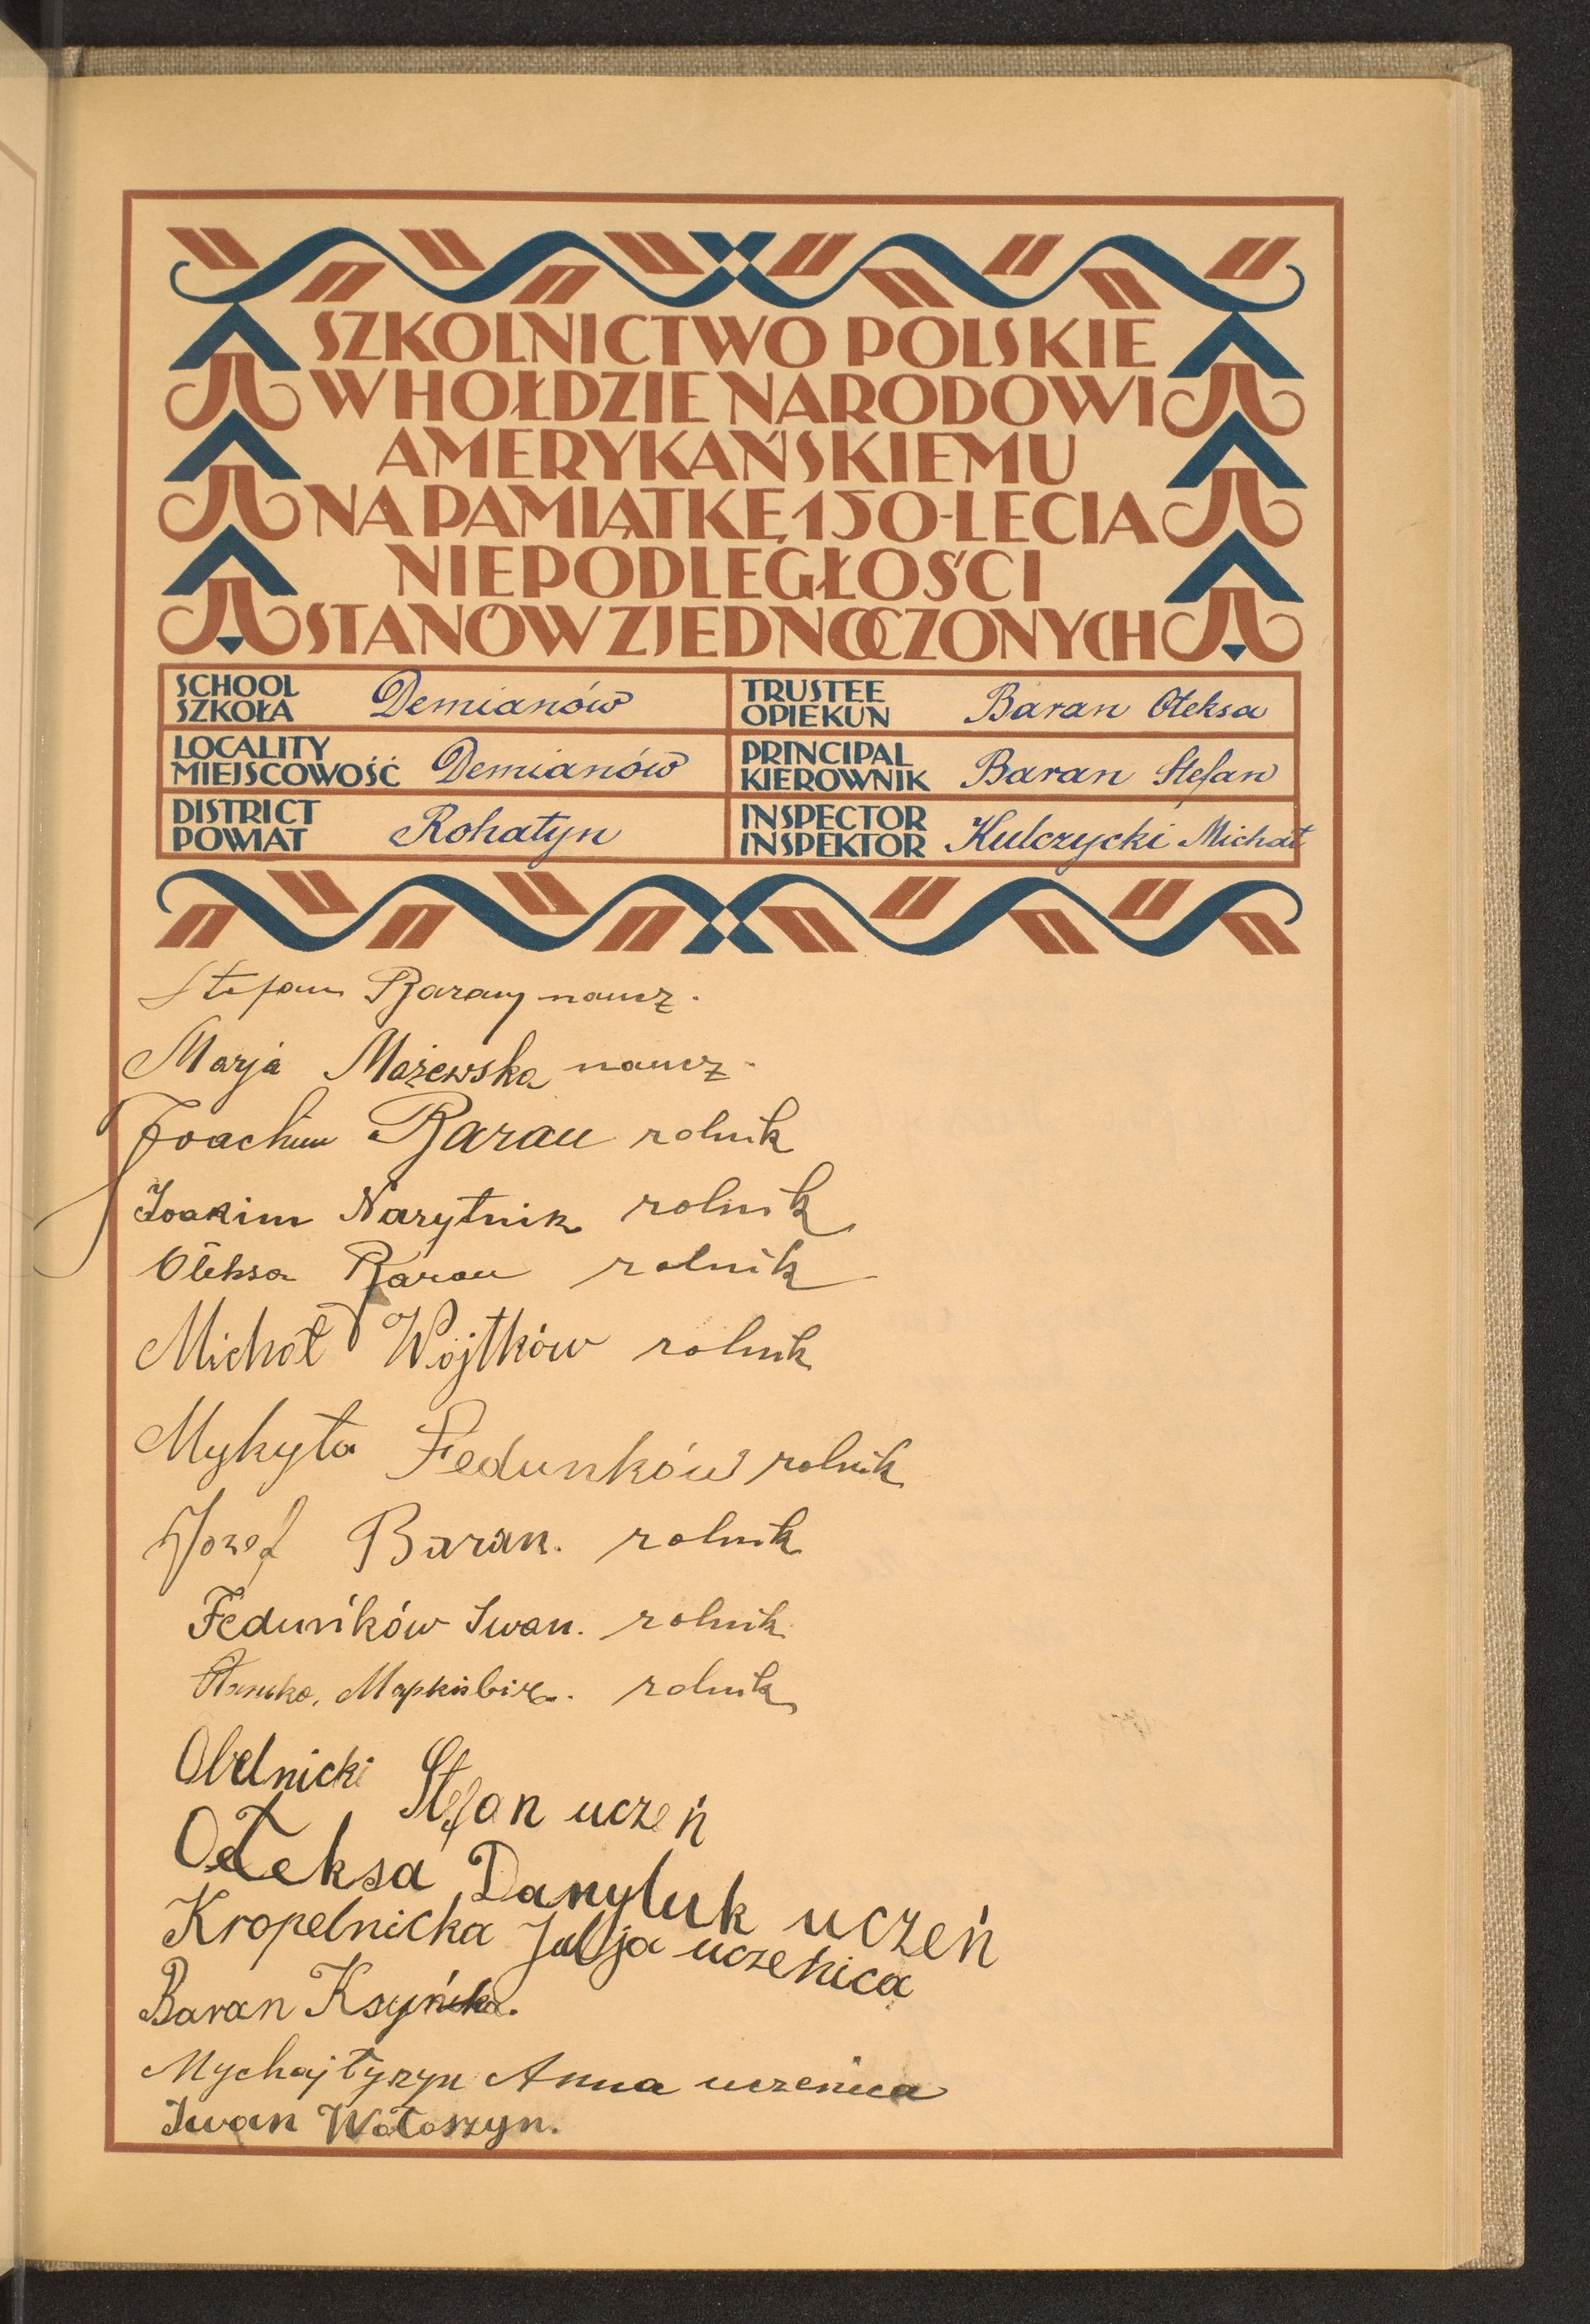 SZKOLNICTWO POLSKIE
W HOŁDZIE NARODOWI
AMERYKAŃSKIEMU
NA PAMIĄTKĘ 150-LECIA
NIEPODLEGŁOŚCI
STANÓW ZJEDNOCZONYCH
SCHOOL
SZKOŁA Demianów
TRUSTEE
OPIEKUN Baran Ołeksa
LOCALITY
MIEJSCOWOŚĆ Demianów
PRINCIPAL
KIEROWNIK Baran Stefan
DISTRICT
POWIAT Rohatyn
INSPECTOR
INSPEKTOR Kulczycki Michał
Stefan Baran naucz.
Marja Mażewska naucz.
Joachim Baran rolnik
Joakim Narytnik rolnik
Ołeksa Baran rolnik
Michał Wojtków rolnik
Mykyta Fedunków rolnik
Józef Baran. rolnik
Feduńków Iwan. rolnik
rolnik
Obelnicki Stefan uczeń
Ołeksa Danyluk uczeń
Kropelnicka Julja uczenica
Baran Ksyńka.
Mychajłyszyn Anna uczenica
Iwan Wołoszyn.